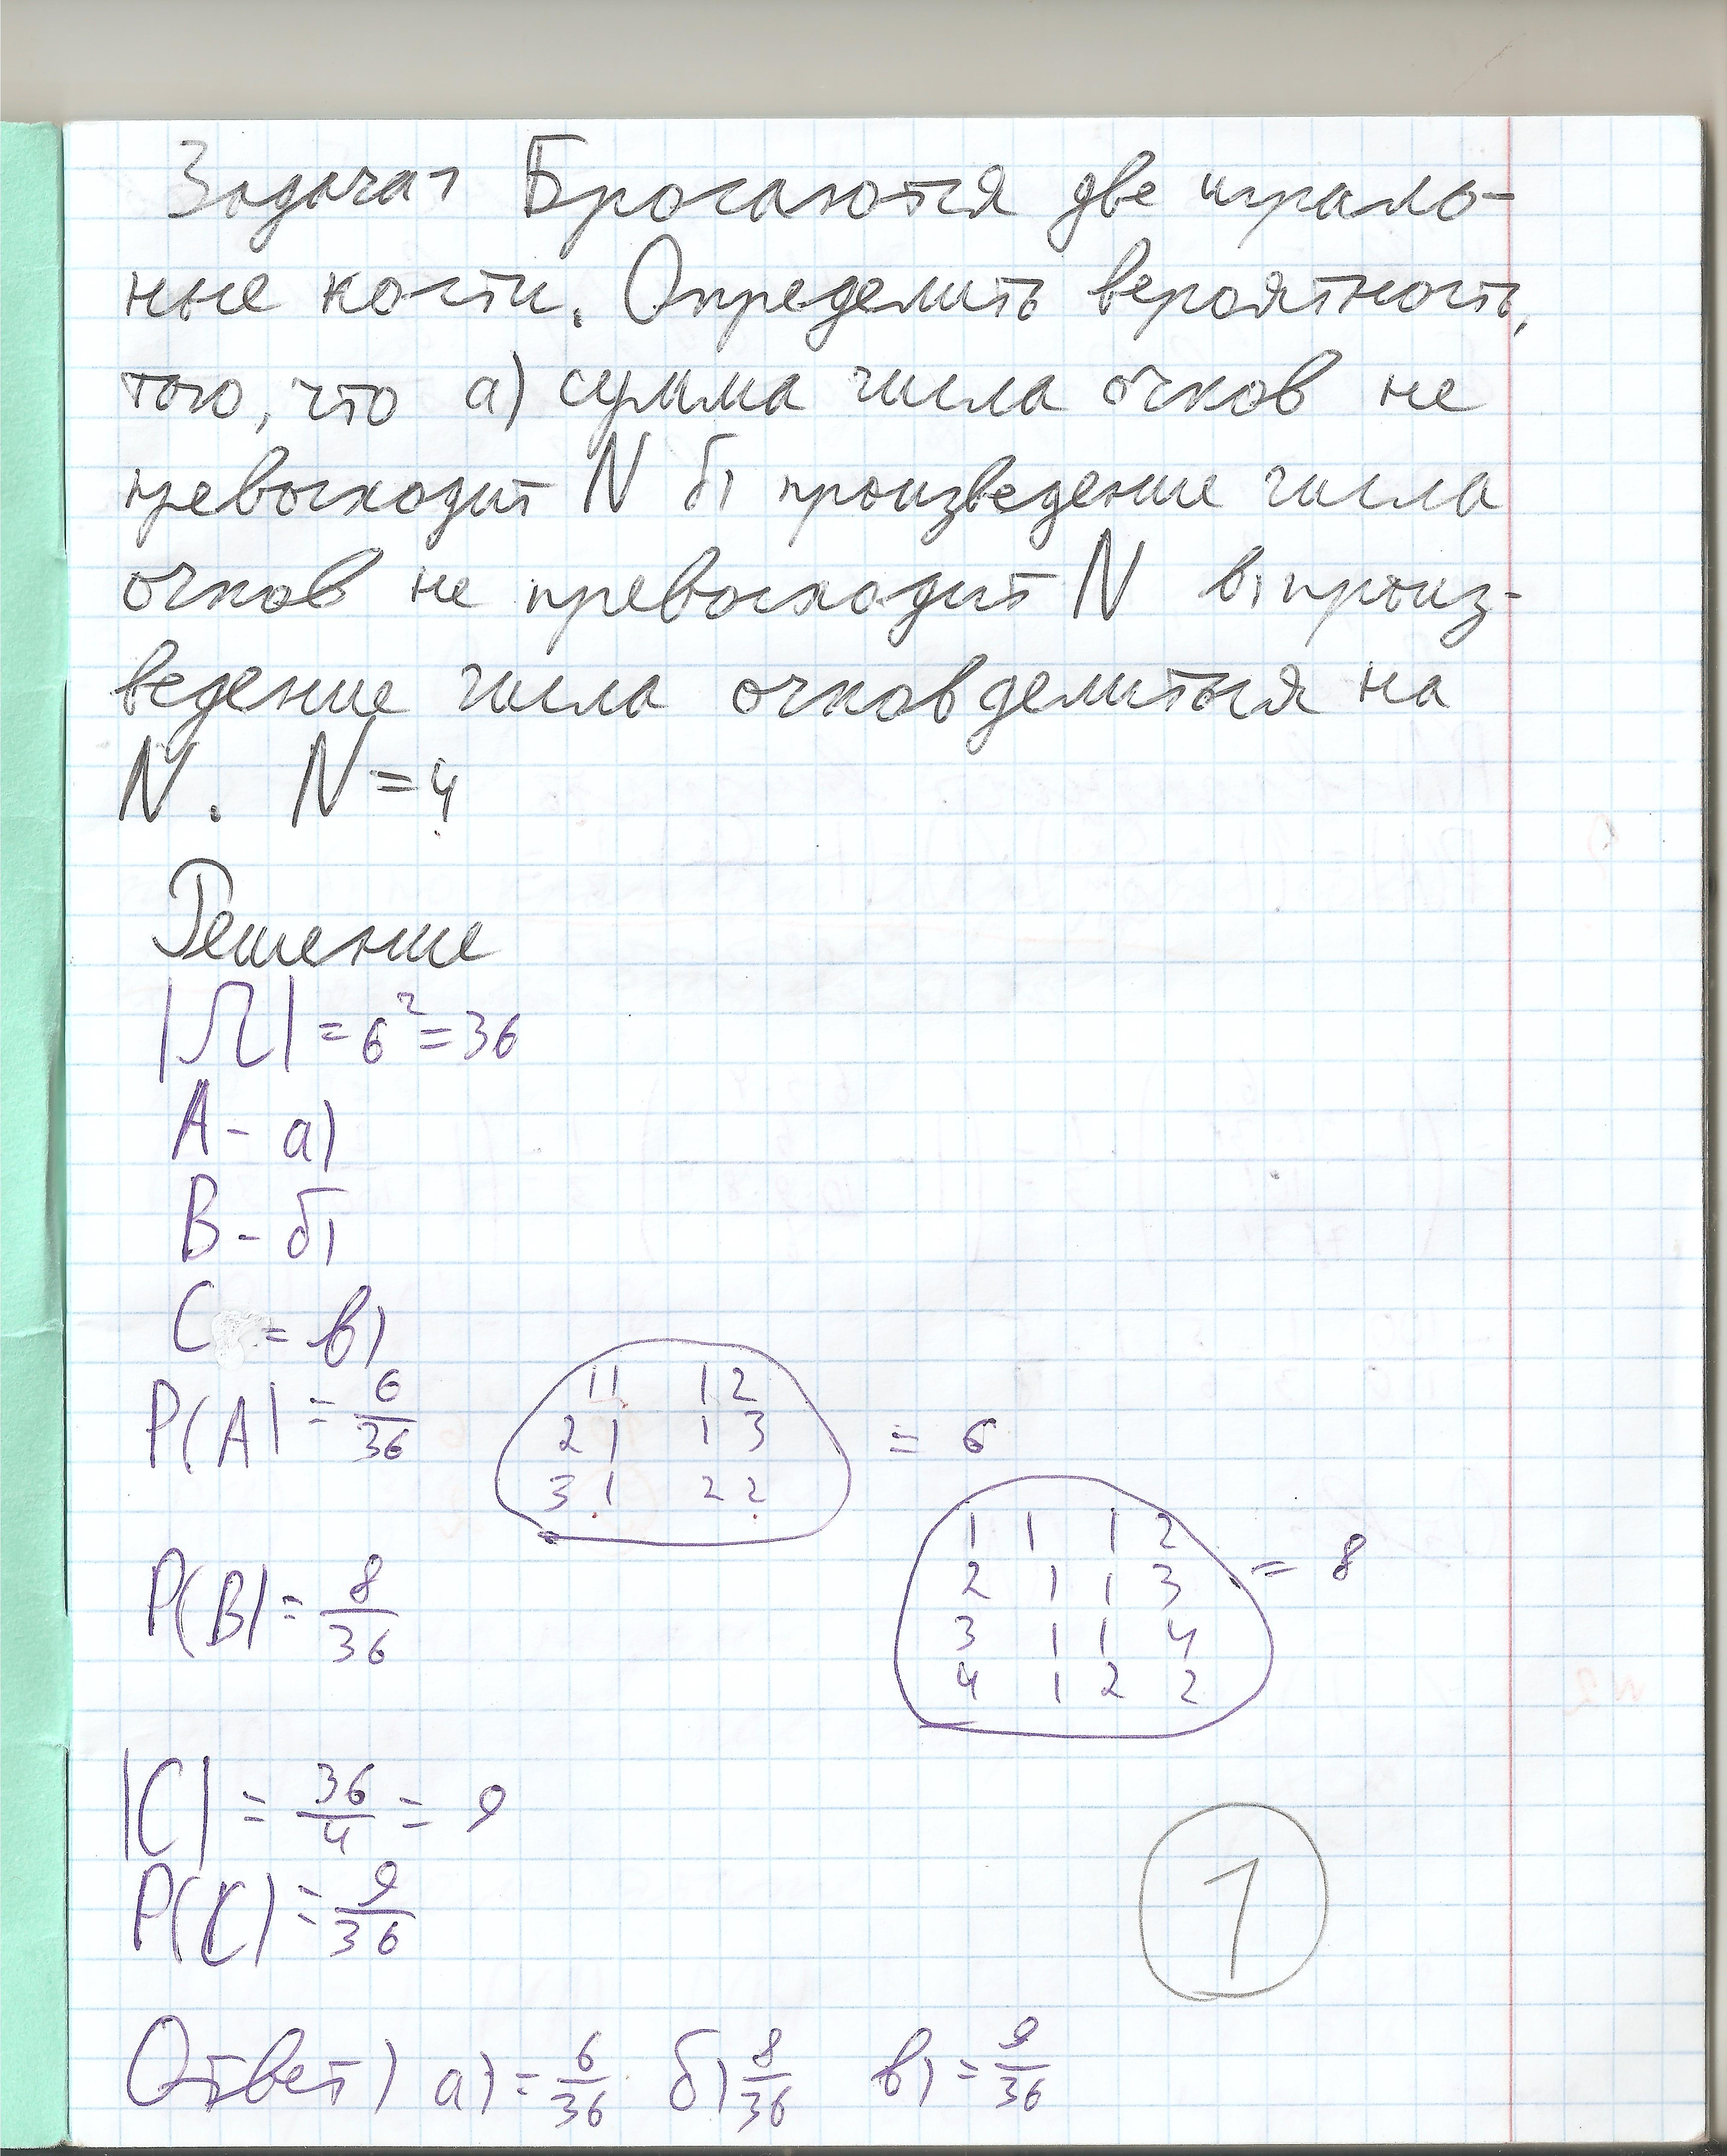 Задача 1 Бросаются две играль-
ные кости. Определить вероятность,
того, что а) сумма числа очков не
превосходит N б) произведение числа
очков не превосходит N в) произ-
ведение числа очков делиться на
N. N = 4
Решение
|Ω| = 6² = 36
A - а)
B - б)
C = в)
P(A) = 6/36
11 12
21 13
31 22
= 6
P(B) = 8/36
1 1 1 2
2 1 1 3
3 1 1 4
4 1 2 2
= 8
|C| = 36/4 = 9
P(C) = 9/36
1
Ответ) а) = 6/36 б) 8/36 в) = 9/36